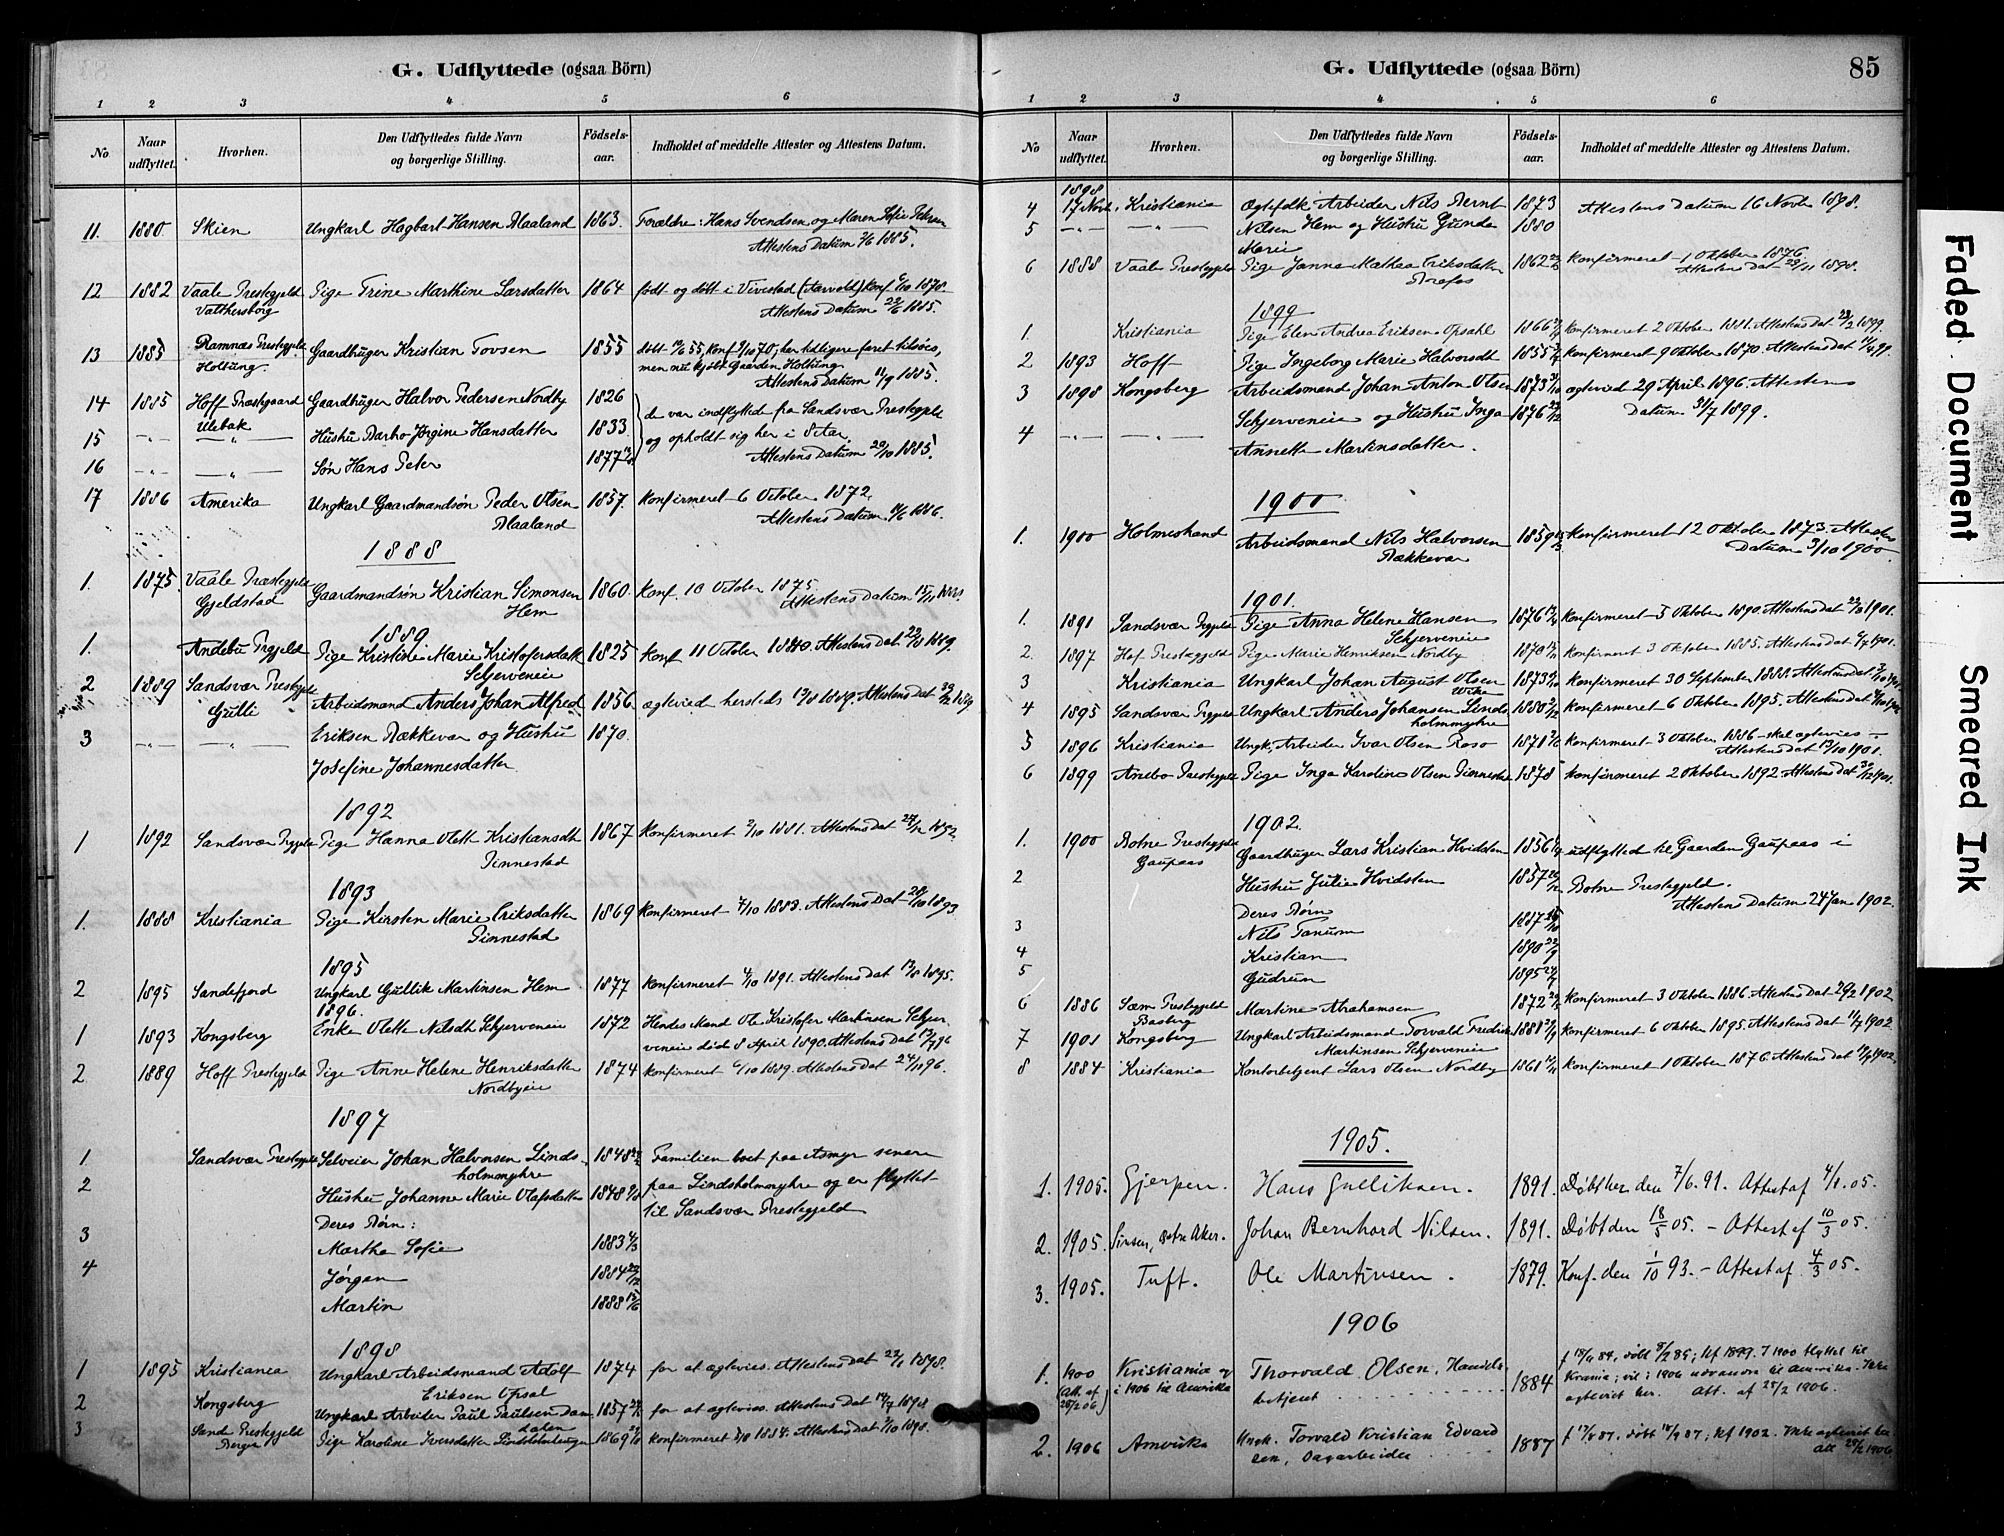 G. Udflyttede (ogsaa Börn)
1 2 3 4 5 6
No Naar udflyttet. Hvorhen. Den Udflyttedes fulde Navn og borgerlige Stilling. Födsels-aar. Indholdet af meddelte Attester og Attestens Datum.
11. 1880 Skien Ungkarl Hagbart Hansen Maaland 1863. Forældre: Hans Svendsen og Maren Sofie
Attestens Datum 1885.
12 1882 Vaale Prestegjeld Pige Trine Marthine Larsdatter 1864 født og døbt i Vivestad Konf 1878.
Valthersborg Attestens Datum 1885.
13 1885 Ramnæs Prestegjeld Gaardbruger Kristian Tovsen 1855 døbt 55, Konf 70, har tidligere faret tilsøes,
Holtung. men nu kjøbt Gaarden Holtung.
Attestens Datum 11/9 1885.
14 1885 Hoff Præstegaard Gaardbruger Halvor Pedersen Nordby 1826 de var indflyttede fra Sandsvær Prestegjeld
Ulebak
15 -"- -"- Hustru Jørgine Hansdatter 1833 og opholdt sig her i 8 Aar.
16 -"- -"- Søn Hans Peter 1877 Attestens Datum 20/10 1885.
17 1886 Amerika Ungkarl Gaardmandsøn Peder Olsen 1857. Konfirmeret 6 October 1872.
Maaland Attestens Datum 1886.
1888
1. 1875 Vaale Præstegjeld Gaardmandsøn Kristian Simonsen 1860. Konf. 10 October 1875.
Gjelstad Hem Attestens Datum 15/11 1888.
1889
1. Andebu Prgjeld Pige Kristine Marie Kristofersdatt 1825 Konf 11 October 1840. Attestens Dat 1889.
Skjerveneie
2 1889 Sandsvær Prestegjeld Arbeidsmand Anders Johan Alfred 1856. ægteviet hersteds 1889. Attestens Dat 1889
Gulli
3 -"- -"- Eriksen Bakkevar og Hustru 1870.
Josefine Johannesdatter
1892
1 1892 Sandsvær Prgjeld Pige Hanna Olette Kristiansdt 1867 Konfirmeret 2/10 1881. Attestens Dat 1892.
Pinnestad
1893
1. 1888 Kristiania Pige Kirsten Marie Eriksdatter 1869 Konfirmeret 7/10 1883. Attestens Dat 1893
Pinnestad
1895
2 1895 Sandefjord Ungkarl Gullik Martinsen Hem 1877 Konfirmeret 4/10 1891. Attestens Dat 1895.
1896.
1 1893 Kongsberg Enke Olette Nilsdt Skjerveneie 1872 Hendes Mand Ole Kristofer Martinsen Skjer-
veneie døde 8 April 1890. Attestens Dat 96
2 1889 Hoff Prestegjeld Pige Anne Helene Henriksdatter 1874 Konfirmeret 6/10 1889. Attestens Dat 96.
Nordbyeie
1897
1. Sandsvær Prestegjeld Selveier Johan Halvorsen Linds- 1848 Familien boet paa Asmyr senere
holmmyhre
2 Hustru Johanne Marie Olafsdatter 1848 paa Lindsholmmyhre og er flyttet
Deres Børn: til Sandsvær Prestegjeld
3 Martha Sofie 1883 4/3
4 Jørgen 1884
Martin 1888 15/6
1898
1 1895 Kristiania Ungkarl Arbeidsmand Adolf 1874 for at ægtevies. Attestens Dat 1898.
Eriksen Opsal
2 Kongsberg Ungkarl Arbeider Paul Paulsen Dam 1857 for at ægtevies. Attestens Dat 1898
3 Sande Prestegjeld Pige Karoline Iversdatter 1869 Konfirmeret 1884. Attestens Dat 1898.
Berger
G. Udflyttede (ogsaa Börn) 85
1 2 3 4 5 6
No Naar udflyttet. Hvorhen. Den Udflyttedes fulde Navn og borgerlige Stilling. Födsels-aar. Indholdet af meddelte Attester og Attestens Datum.
1898
4 17 Novb. Kristiania Ægtefolk Arbeider Nils Bernt 1873 Attestens Datum 16 Novb 1898.
5 -"- -"- Nilsen Hem og Hustru Gunda 1880
Marie
6 1888 Vaale Prestegjeld Pige Janna Mathea Eriksdatter 1862 Konfirmeret 1 Oktober 1876
Attestens Dat 1898.
1899
1. Kristiania Pige Elen Andrea Eriksen Opsahl 1866 Konfirmeret 2 Oktober 1881. Attestens Dat 1899.
2 1893 Hoff Pige Ingeborg Marie Halvorsdt 1855 Konfirmeret 9 Oktober 1870. Attestens Dat 99.
3 1898 Kongsberg Arbeidsmand Johan Anton Olsen 1873 ægteviet 29 April 1896. Attestens
Skjerveneie og Hustru Inga 1876 Datum 31/7 1899.
4 -"- -"- Annette Martinsdatter.
1900
1. 1900 Holmestrand Arbeidsmand Nils Halvorsen 1859 Konfirmeret 12 Oktober 1873. Attestens
Bakkevar Datum 3/10 1900
1901.
1. 1891 Sandsvær Prgjeld Pige Anna Helene Hansen 1876 Konfirmeret 5 Oktober 1890. Attestens Dat 1901.
Skjerveneie
2. 1897 Hof Prestegjeld Pige Marie Henriksen Nordby 1870 Konfirmeret 3 Oktober 1885. Attestens Dat 1901.
3 Kristiania Ungkarl Johan August Olsen 1873 Konfirmeret 30 September 1888. Attestens Dat
4 1895 Sandsvær Prgjeld Ungkarl Anders Johansen Linds 1880 Konfirmeret 6 Oktober 1895. Attestens Dat
holmmyhre
5 1896 Kristiania Ungk. Arbeider Ivar Olsen 1871 Konfirmeret 3 Oktober 1886 skal ægtevies
Attestens Dat 1901.
6 1899 Anebo Prestegjeld Pige Inga Karoline Olsen Pinnestad 1878 Konfirmeret 2 Oktober 1892. Attestens Dat 1901.
1902.
1. 1900 Botne Prestegjeld Gaardbruger Lars Kristian Hvidsten 1856 udflyttede til Gaarden Gaupaas i
Gaupaas
2 Hustru Julie Hvidsten 1857 Botne Prestegjeld.
Deres Børn Attestens Datum 24 Jan 1902.
3 Nils Tanum 1887
4 Kristian 1890
5 Gudrun 1895
6 1886 Sæm Prestegjeld Martine Abrahamsen 1872 Konfirmeret 3 Oktober 1886. Attestens Dat 1902
Basberg
7 1901 Kongsberg Ungkarl Arbeidsmand Torvald Fredrik 1881 Konfirmeret 6 Oktober 1895. Attestens Dat 1902
Martinsen Skjerveneie
8 1884 Kristiania Kontorbetjent Lars Olsen Nordby 1861 Konfirmeret 1 Oktober 1876. Attestens Dat 1902.
1905.
1. 1905. Gjerpen. Hans Gulliksen. 1891. Døbt her den 7/6. 91. Attest af 4/1. 05.
2. 1905. Aker. Johan Bernhard Nilsen. 1891. Døbt den 18/5 05. - Attest af 10/3 05.
3. 1905. Tuft. Ole Martinsen. 1879. Konf. den 1/10 93. - Attest af 4/3 05.
1906
1. 1900 Kristiania og Thorvald Olsen, Handels- 1884 f 84, døbt 8/2 85; kf 1899. I 1900 flyttet til
(Att. af 25/2 06) i 1906 til Amerika betjent Krania; vil i 1906 udvandre til Amerika. Ikke
ægteviet her. Att. af 25/2 1906.
2. 1906 Amerika Ungk. Torvald Kristian Edvard 1887 f 87, døbt 87; kf 1902. Ikke ægteviet her
sen, Dagarbeider Att 1906.
Faded Document
Smeared Ink